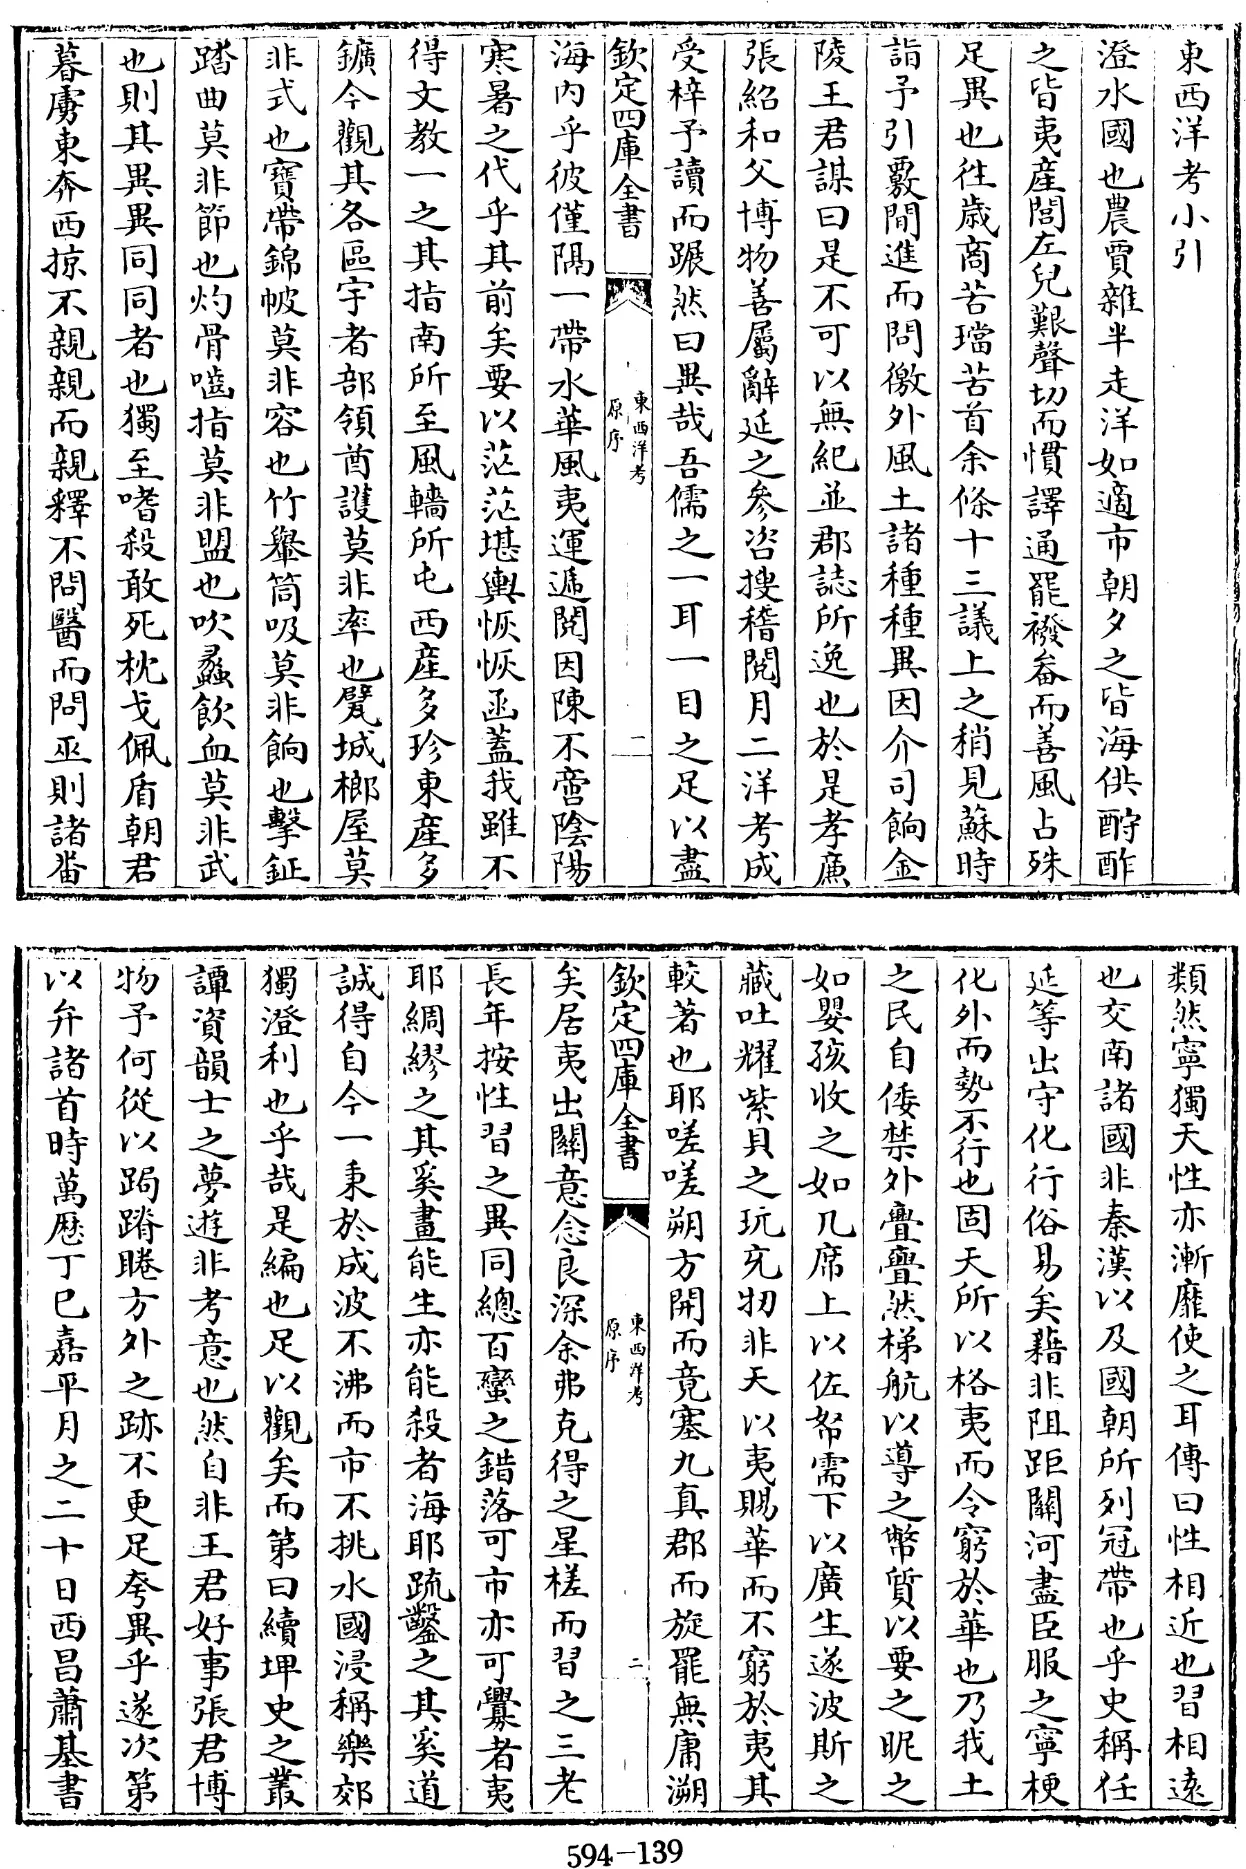 東西洋考小引
澄水國也農賈雜半走洋如適市朝夕之皆海供酧酢
之皆夷産閭左兒艱聲切而慣譯通罷襏畚而善風占殊
足異也徃歲商苦璫苦首余條十三議上之稍見蘇時
詣予引覈間進而問徼外風土諸種種異因介司餉金
陵王君謀曰是不可以無紀並郡誌所逸也於是孝廉
張紹和父博物善屬辭延之參咨搜稽閲月二洋考成
受梓予讀而踞然曰異哉吾儒之一耳一目之足以盡
欽定四庫全書
東西洋考
原序
一
海内乎彼僅隔一帶水華風夷運遞閲因陳不啻陰陽
寒暑之代乎其前矣要以茫茫堪輿恢恢函蓋我雖不
得文教一之其指南所至風轎所屯西産多珍東産多
鑛今觀其各區宇者部領酋護莫非率也甓城榔屋莫
非式也寳帶錦帔莫非容也竹轝筒吸莫非餉也擊鉦
踏曲莫非節也灼骨嚙指莫非盟也吹蠡飲血莫非武
也則其異異同同者也獨至嗜殺敢死枕戈佩盾朝君
暮虜東奔西掠不親親而親釋不問醫而問巫則諸畨
類然寧獨天性亦漸靡使之耳傳曰性相近也習相遠
也交南諸國非秦漢以及國朝所列冠帶也乎史稱任
延等出守化行俗易矣藉非阻距關河盡臣服之寧梗
化外而勢不行也固天所以格夷而令窮於華也乃我土
之民自倭禁外亹亹然梯航以導之幣質以要之昵之
如嬰孩收之如几席上以佐帑需下以廣生遂波斯之
藏吐耀紫貝之玩充牣非天以夷賜華而不窮於夷其
較著也耶嗟嗟朔方開而竟塞九真郡而旋罷無庸溯
欽定四庫全書
東西洋考
原序
二
矣居夷出關意念良深余弗克得之星槎而習之三老
長年按性習之異同總百蠻之錯落可市亦可釁者夷
耶綢繆之其奚晝能生亦能殺者海耶疏鑿之其奚道
誠得自今一秉於成波不沸而市不挑水國浸稱樂郊
獨澄利也乎哉是編也足以觀矣而第曰續坤史之叢
譚資韻士之夢遊非考意也然自非王君好事張君博
物予何從以跼蹐睠方外之跡不更足夸異乎遂次第
以弁諸首時萬厯丁巳嘉平月之二十日西昌蕭基書
594-139